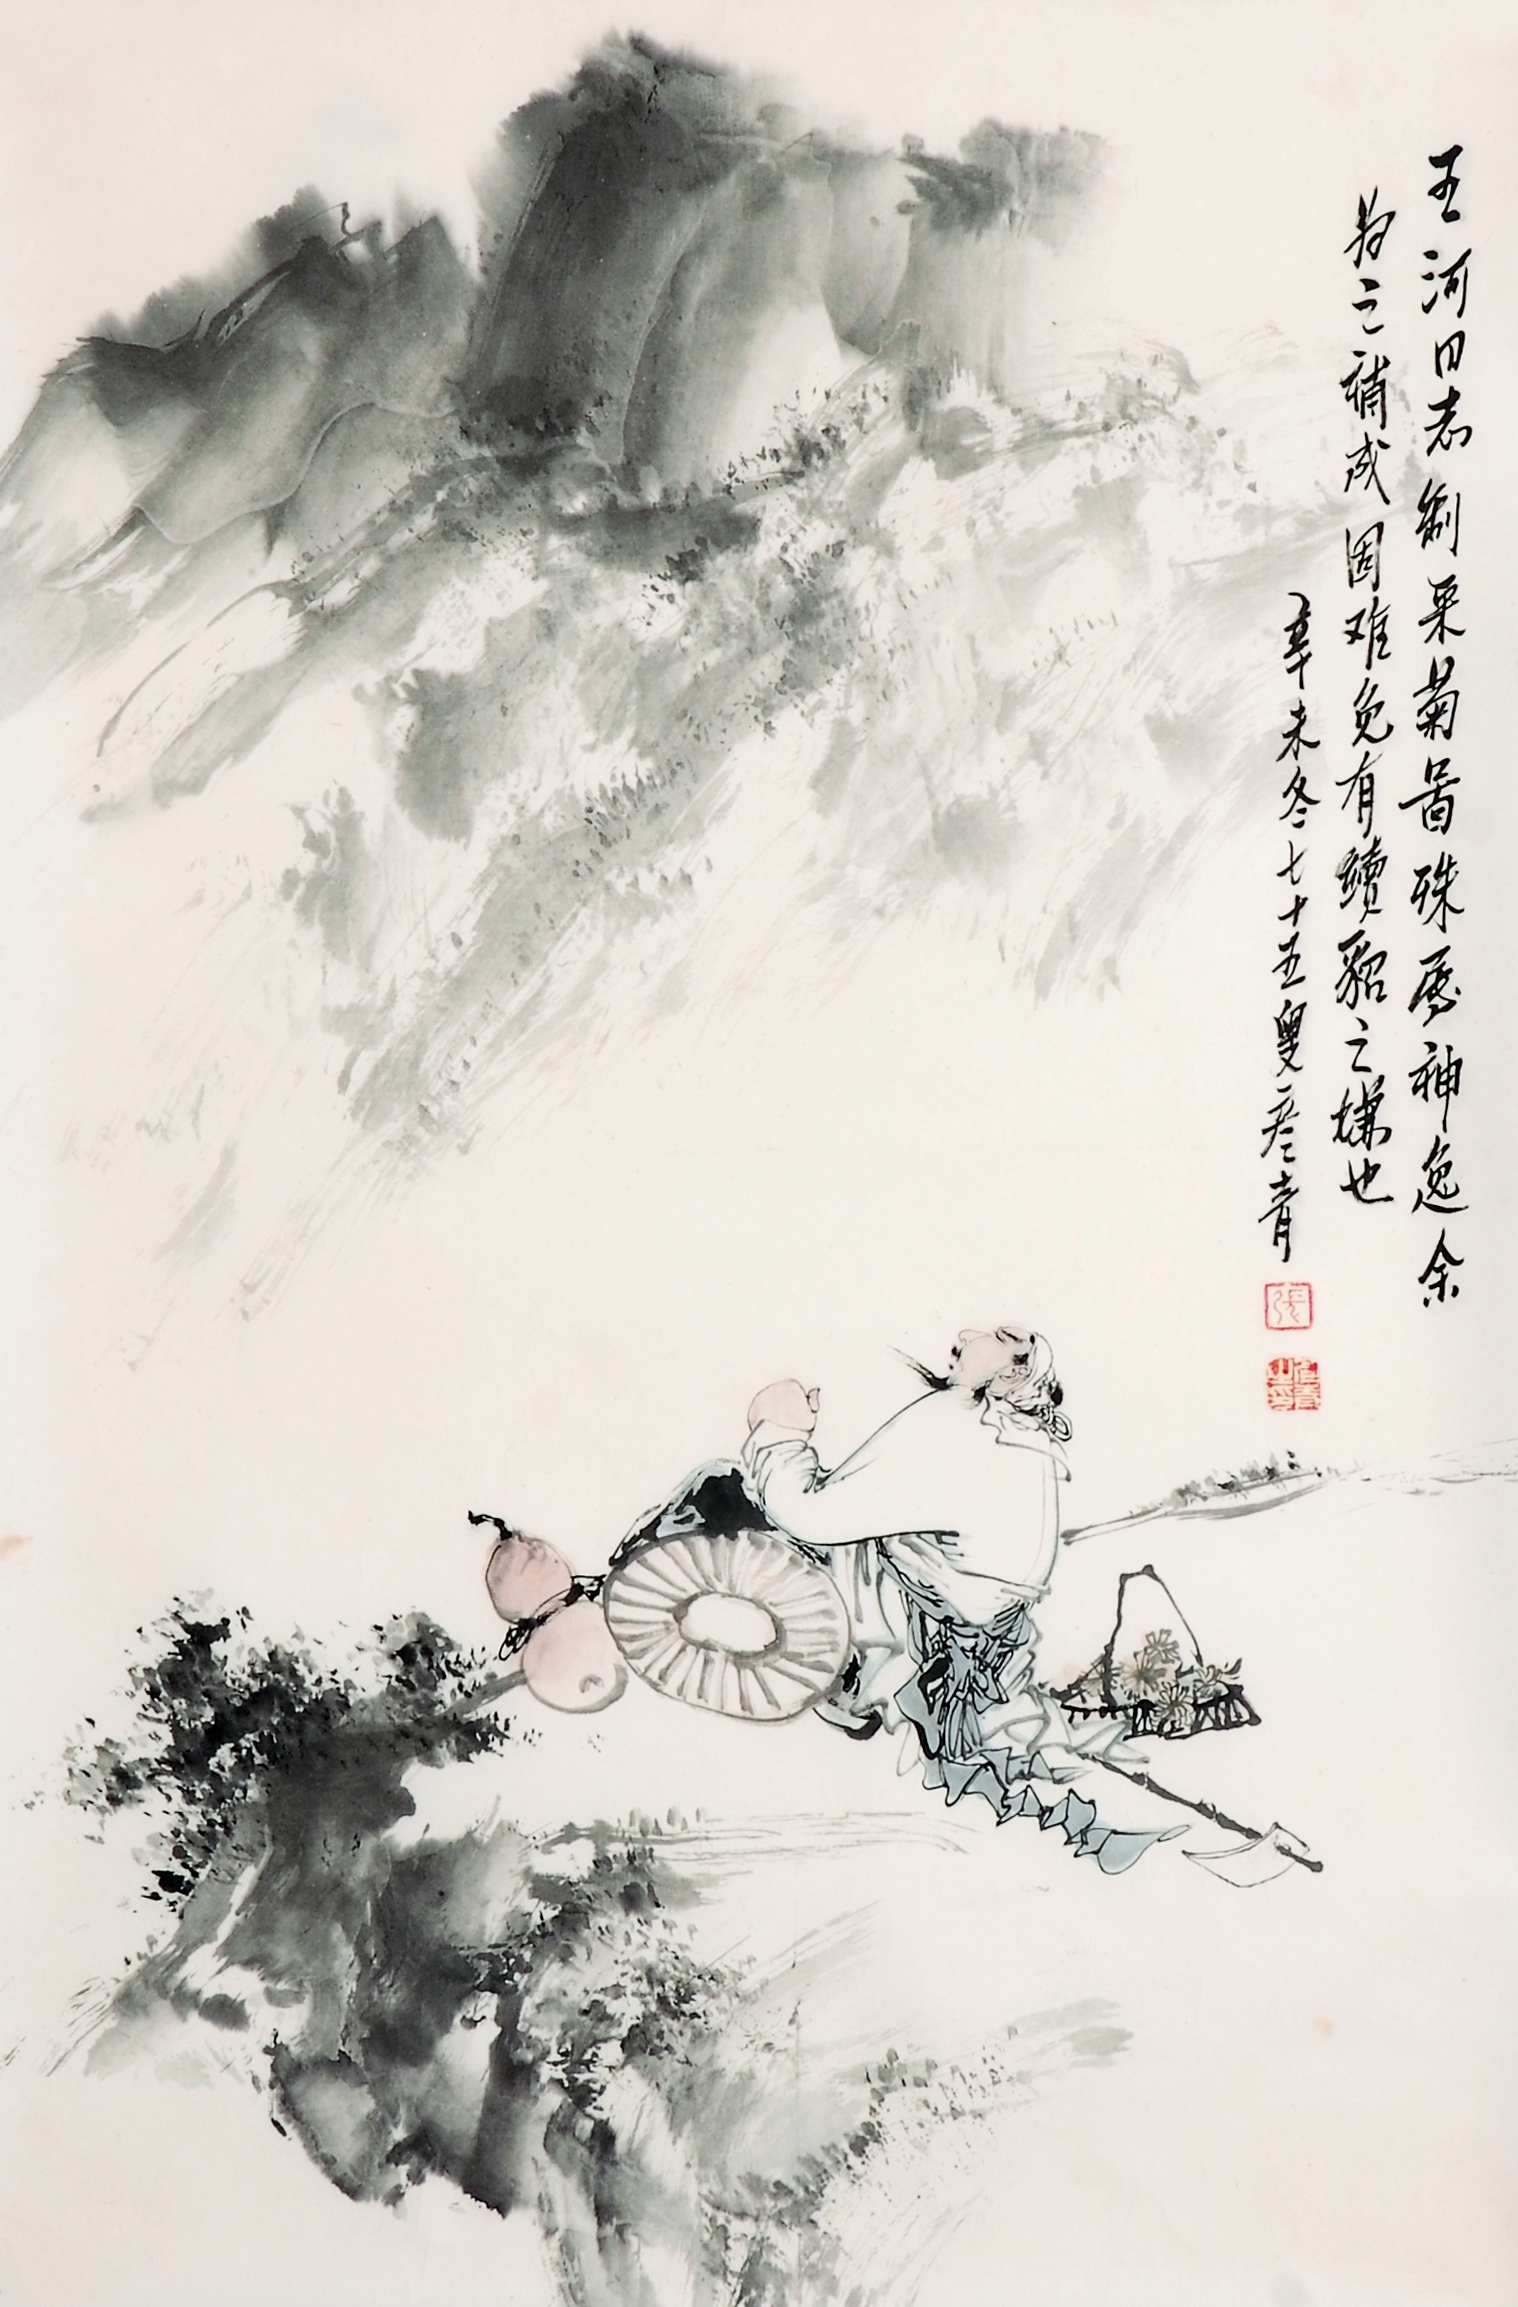 王河同志制采菊图殊為神逸余
为之補成固难免有續貂之嫌也
辛未冬七十五叟彦青